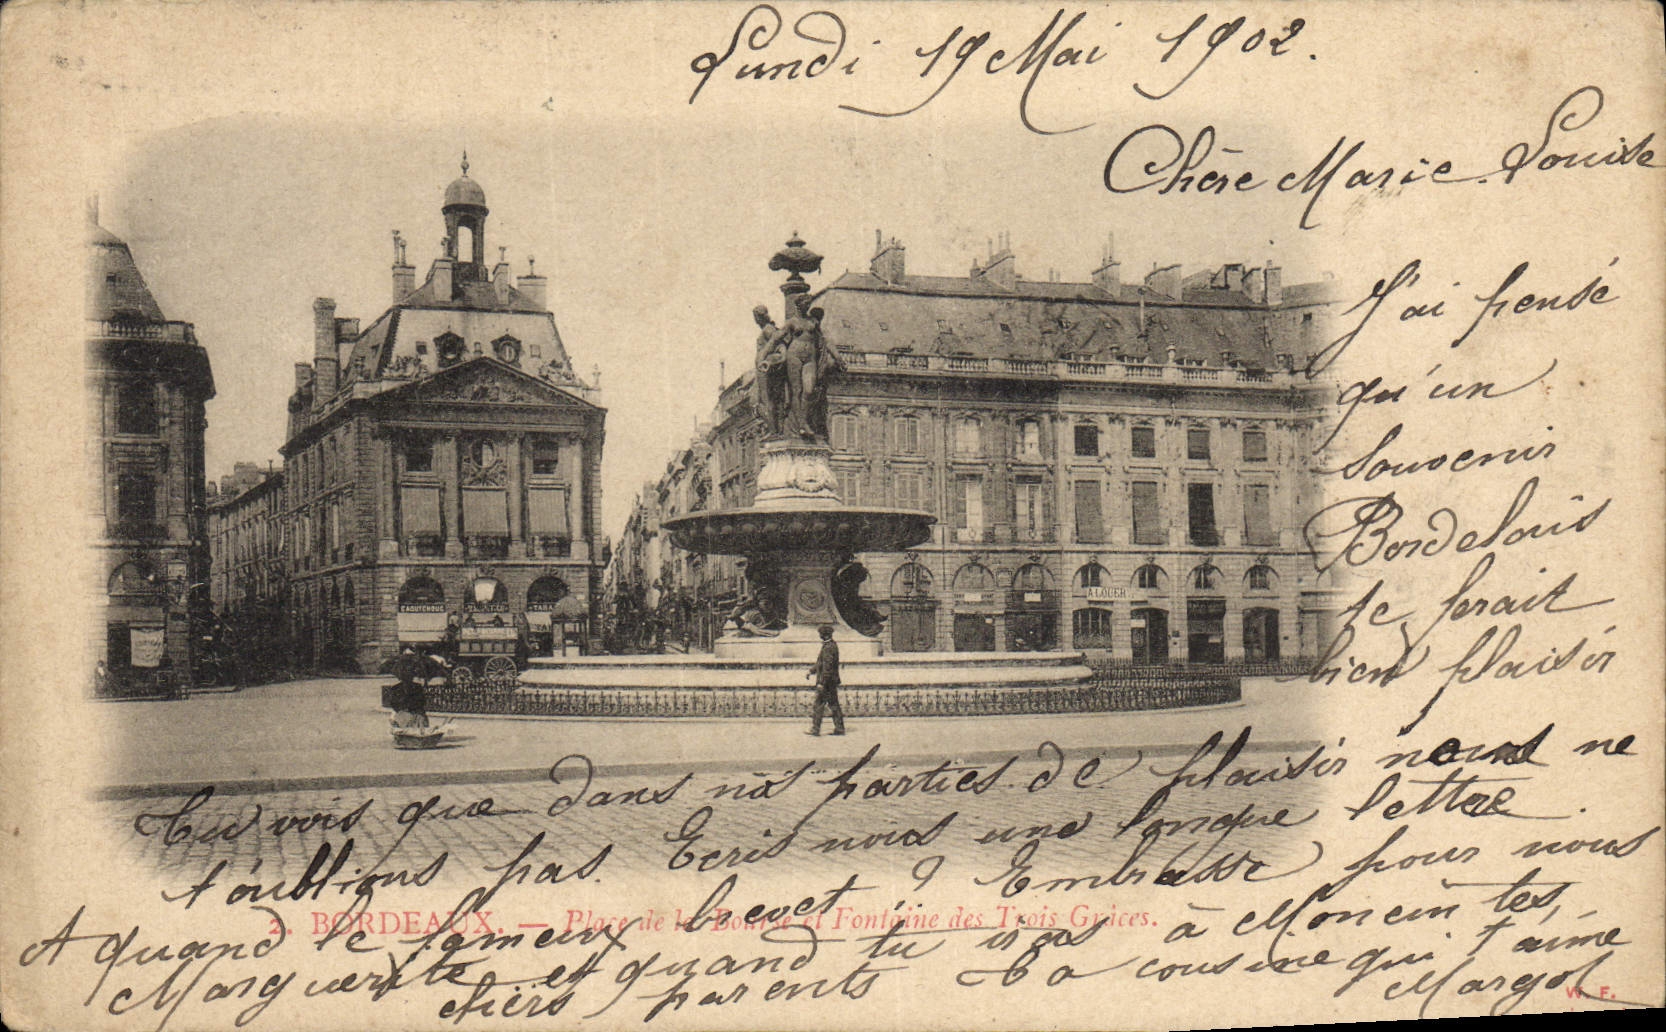 Lundi 19 Mai 1902.
Chère Marie-Louise
J'ai pensé
qu'un
souvenir
Bordelais
te ferait
bien plaisir
CAOUTCHOUC
TABA
A LOUER
Tu vois que dans nos parties de plaisir nous ne
t'oublions pas. Ecris nous une longue lettre.
A quand le fameux brevet ? Embrasse pour nous
Marguerite et quand tu iras à tes
chers parents Ta cousine qui t'aime
Margot
2. BORDEAUX. — Place de la Bourse et Fontaine des Trois Grâces.
W. F.